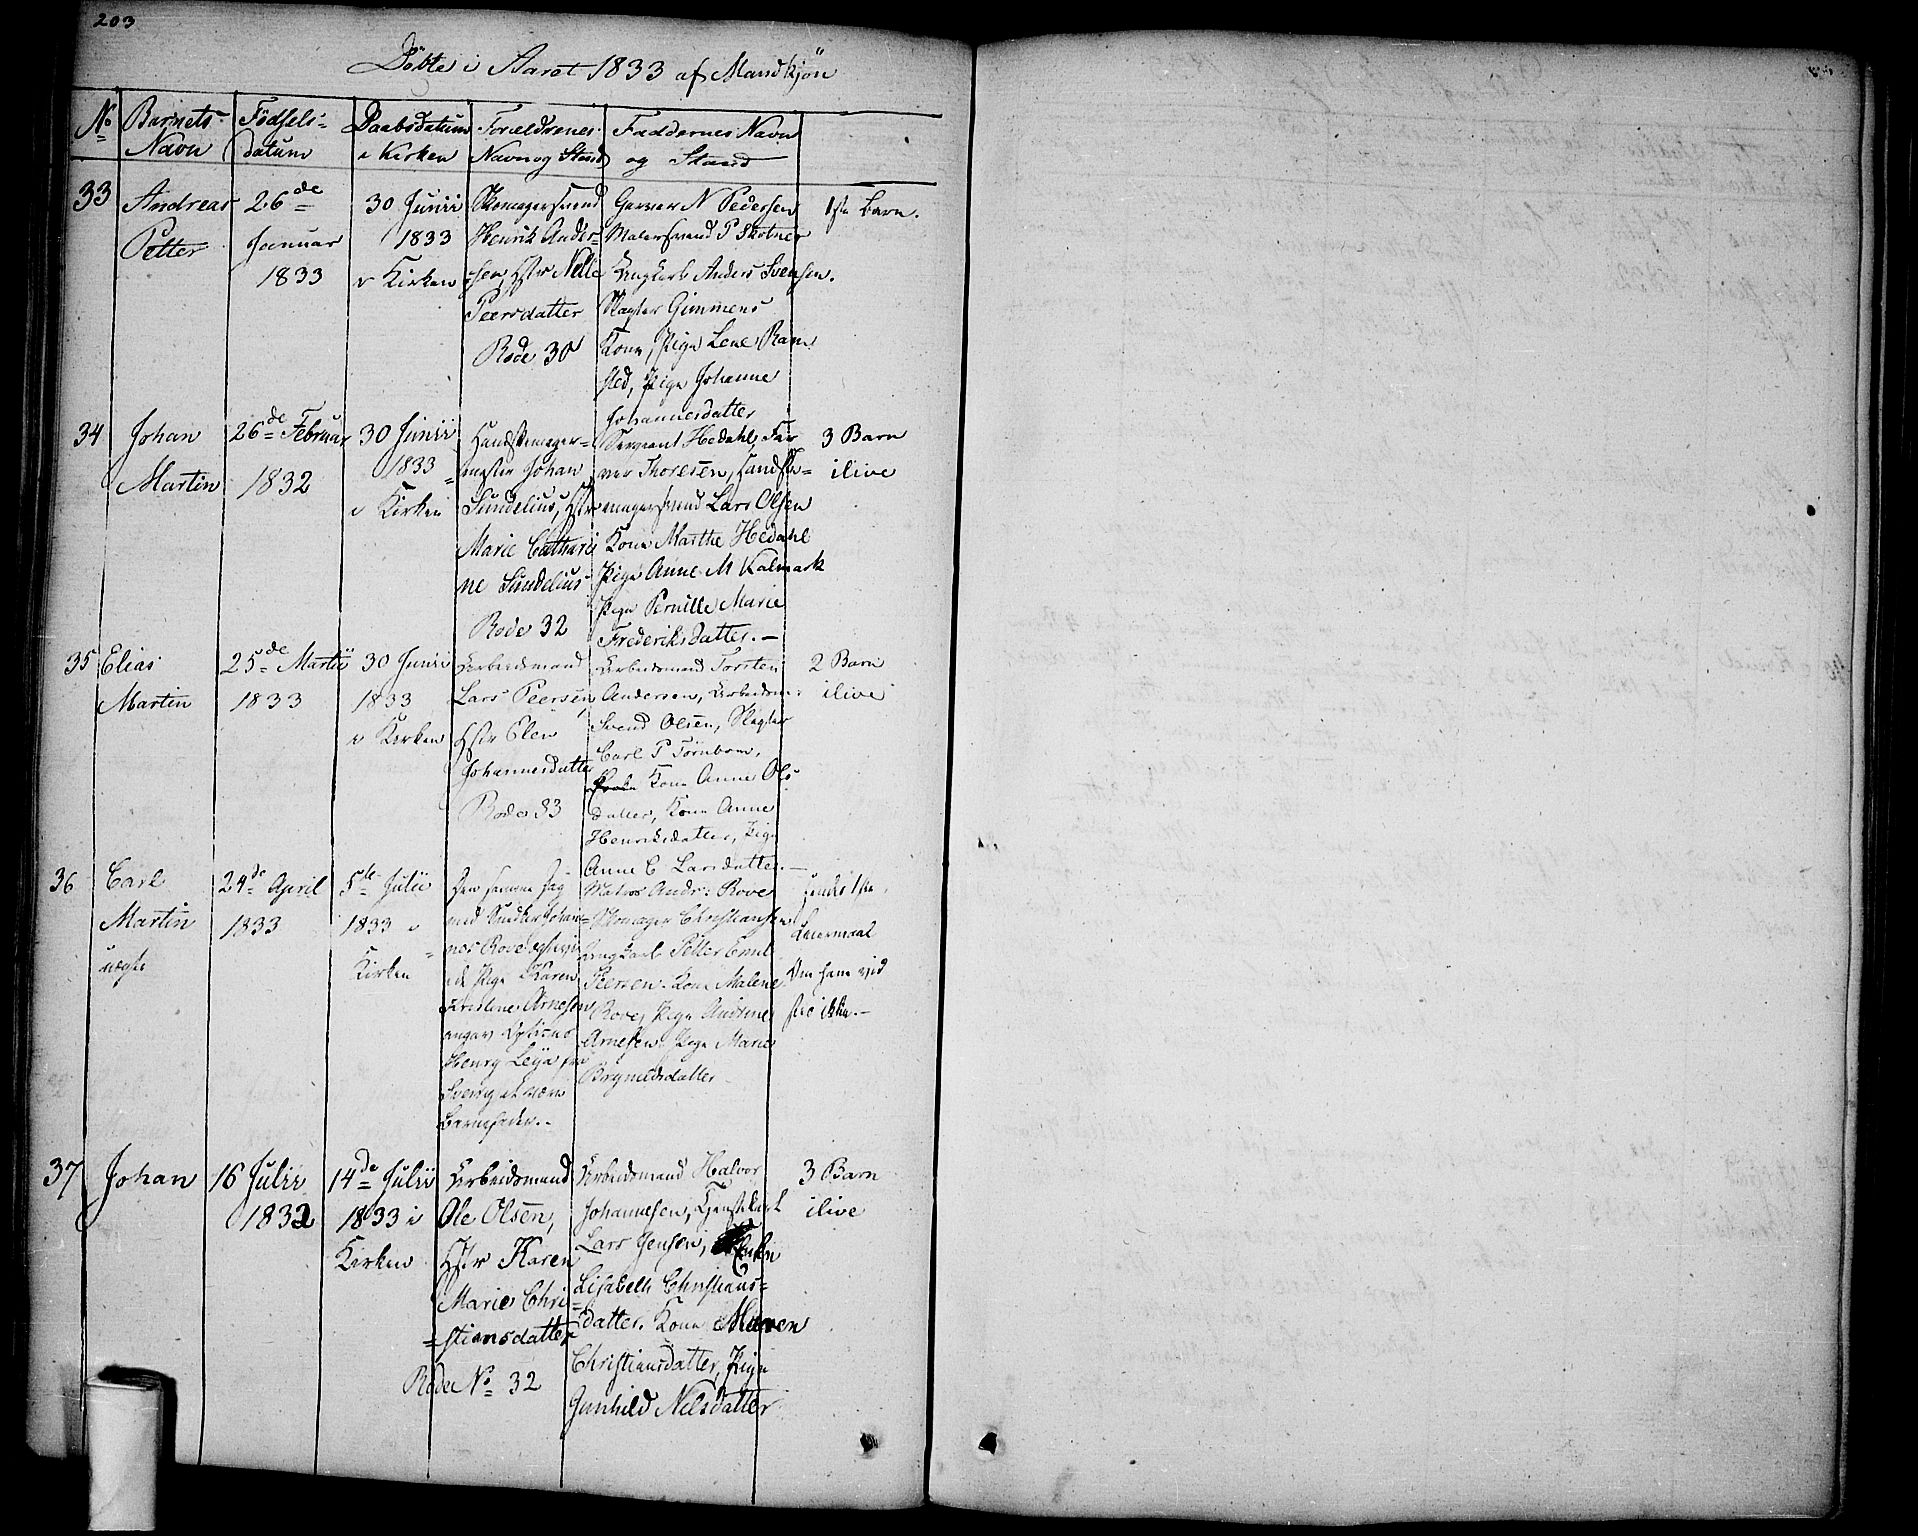 203
Döbte i Aaret 1833 af Mandkjön
No Barnets Navn
Födsels datum
Daabsdatum i Kirken
Forældrenes Navn og Stand
Faddernes Navn og Stand
33
Andreas
Petter
26de
Januar
1833
30 Junii
1833
i Kirken
Skomagersvend
Henrik Ander-
sen, Hstr Nille
Peersdatter
Rode 30
Garver N Pedersen
Malersvend P Skotner
Ungkarl Anders Svensen.
Slagter Gimmens
Kone, Pige Lene Ram
sted, Pige Johanne
Johannesdatter
1ste Barn.
34
Johan
Martin
26de Februar
1832
30 Junii
1833
i Kirken
Handskemager-
mester Johan
Sundelius, Hstr
Marie Cathari
ne Sundelius
Rode 32
Sergeant Hedahl, Far
ver Thoresen, Handske-
magersvend Lars Olsen
Kone Marthe Hedahl
Pige Anne M Kalmark
Pige Pernille Marie
Frederiksdatter.—
3 Barn
ilive
35
Elias
Martin
25de Martii
1833
30 Junii
1833
i Kirken
Arbeidsmand
Lars Peersen,
Hstr Elen
Johannesdatter
Rode 33
Arbeidsmand Torsten
Andersen, Arbeidsm:
Svend Olsen, Slagter
Carl P Törnbom,
Kone Anne Ols
datter, Kone Anne
Henriksdatter, Pige
Anne C Larsdatter.—
2 Barn
ilive
36
Carl
Martin
uægte
24de April
1833
5te Julii
1833 i
Kirken
Rove
Pige Karen
Arnesen
angav
Henry Leija fra
Sverrig at være
Barnefader.-
Matros Andr: Rove
Skomager Christiansen
Ungkarl Petter Emil
Peersen. Kone Malene
Rove, Pige Andrine
Arnesen. Pige Marie
Brynildsdatter
hendes 1ste
Leiermaal
Om ham vid
ste ikke.—
37
Johan
16 Julii
1832
14de Julii
1833 i
Kirken
Arbeidsmand
Ole Olsen,
Hstr Karen
Marie Chri-
stiansdatter
Rode No 32
Arbeidsmand Halvor
Johannesen, Tjenstekarl
Lars Jensen, Enken
Lisabeth Christians-
datter. Kone Maren
Christiansdatter, Pige
Gunhild Nilsdatter
3 Barn
ilive